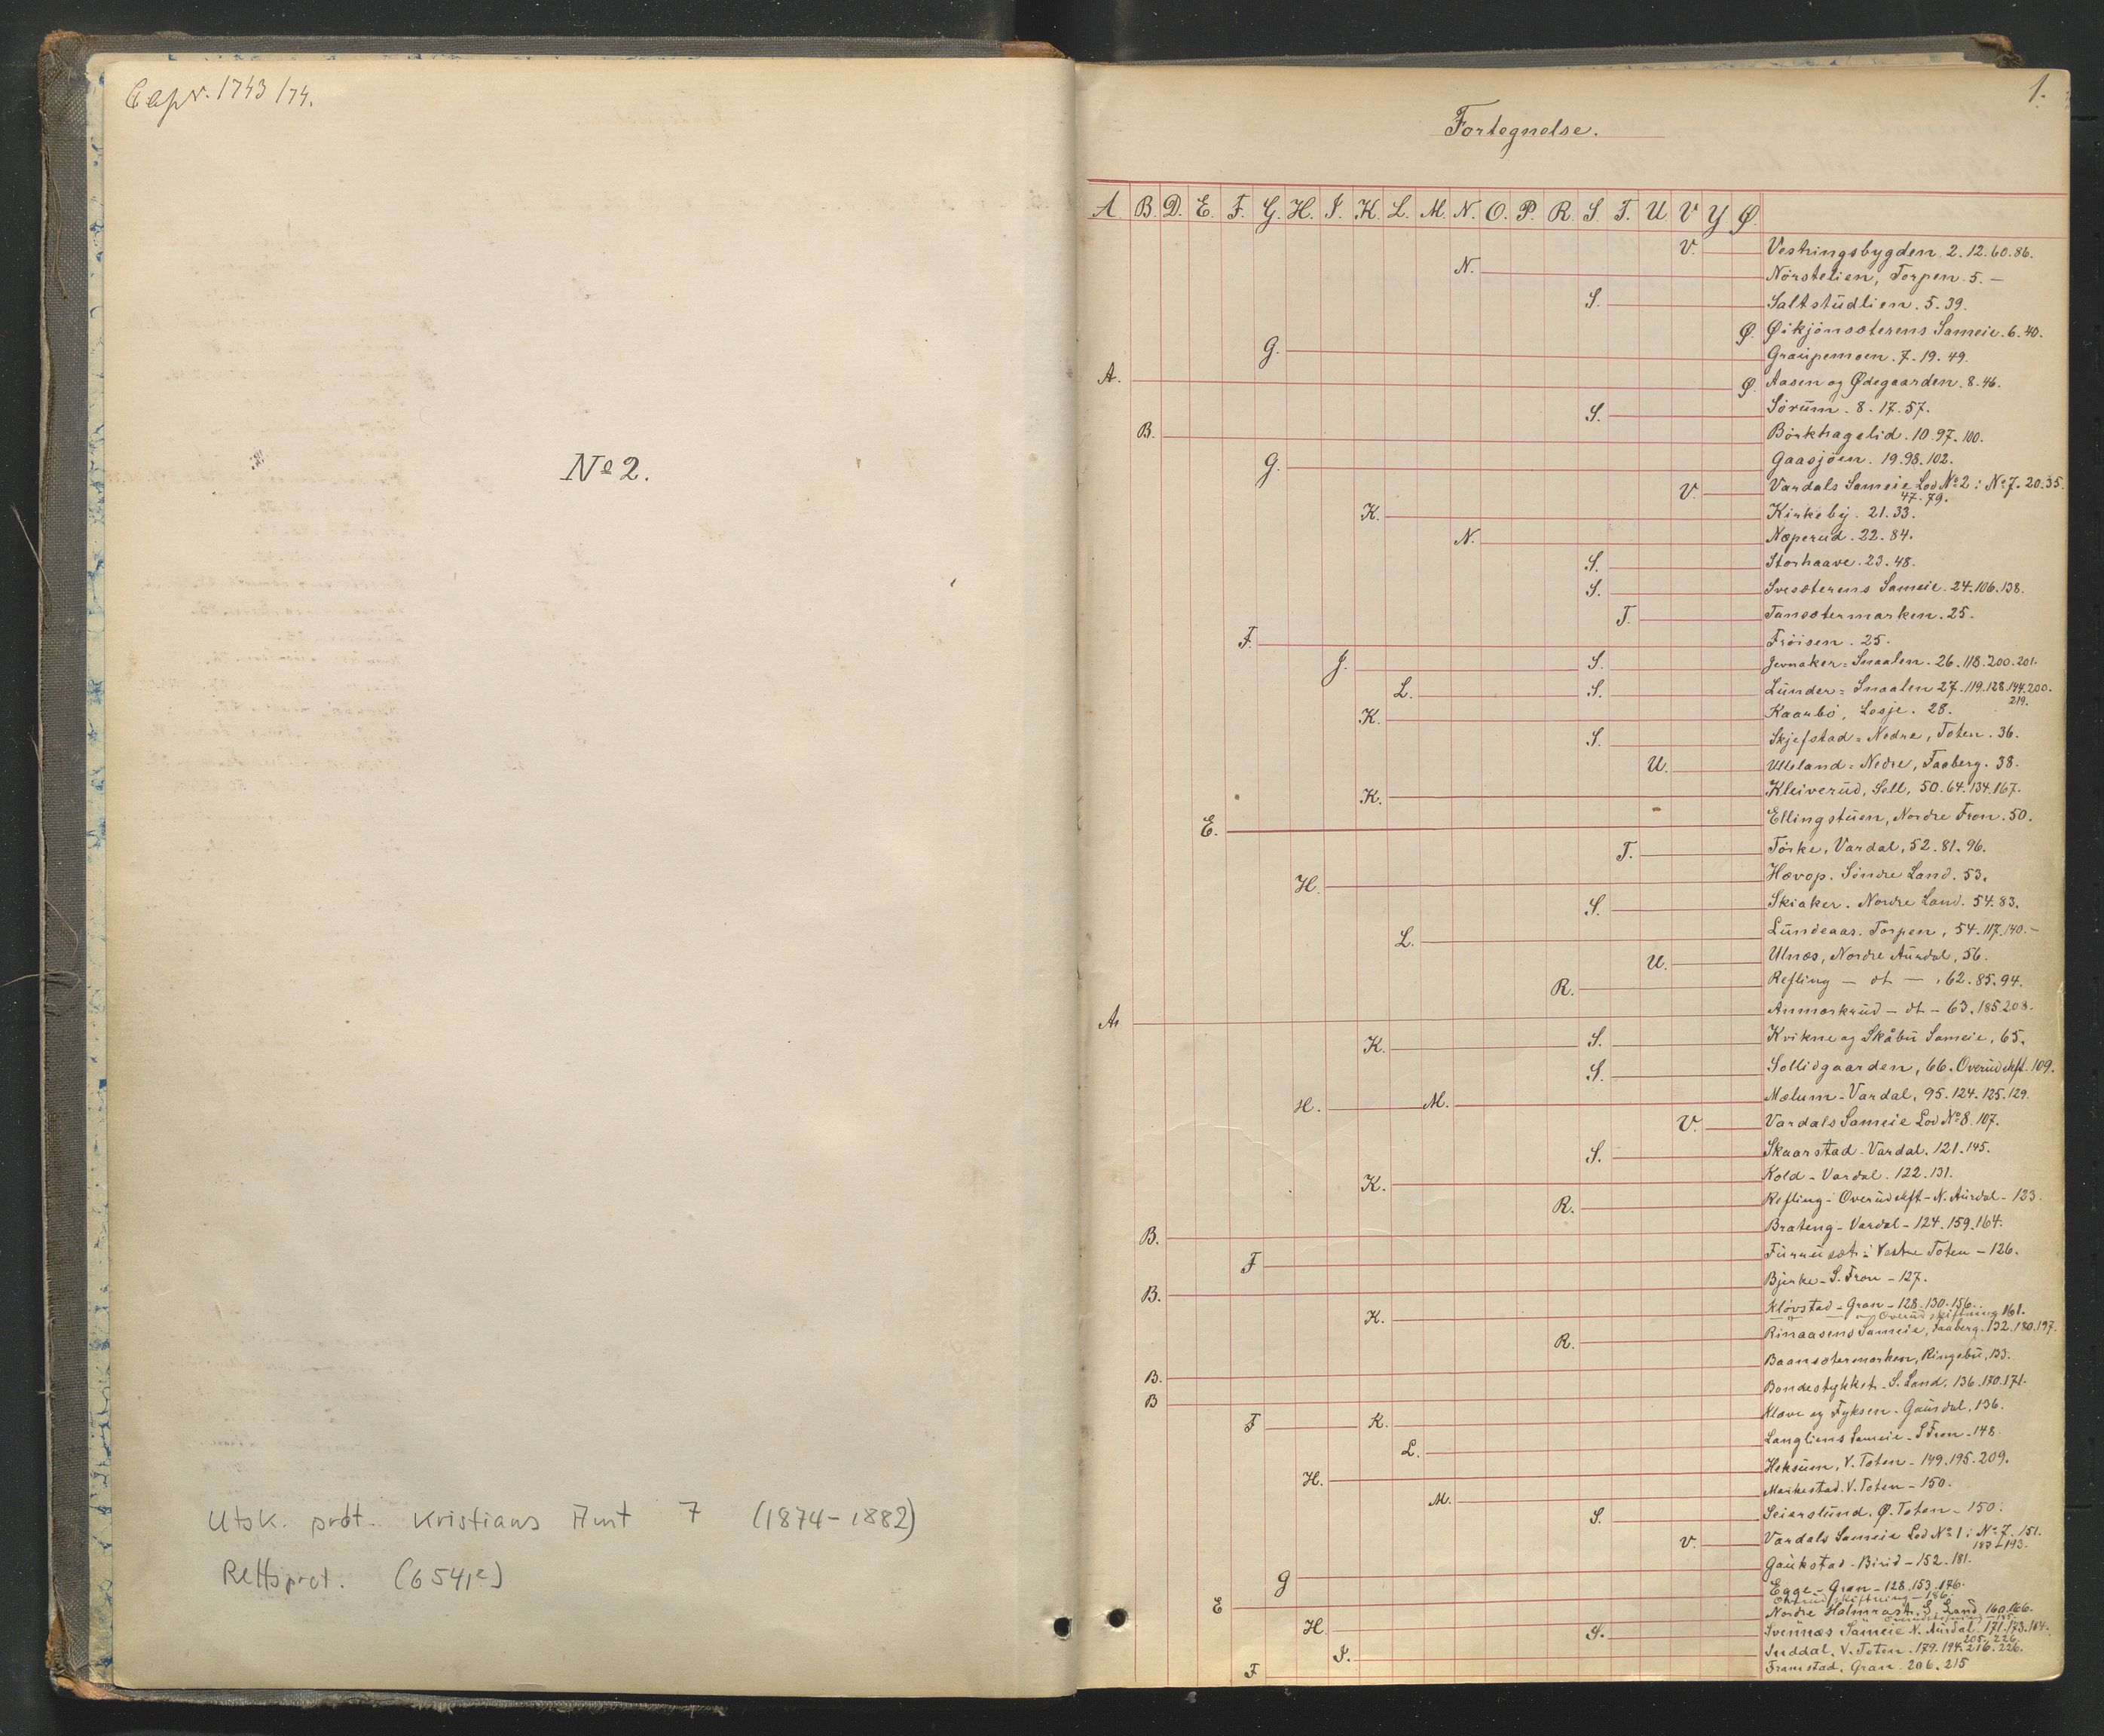 1743/74.
No 2.
Utsk. prot. Kristians Amt 7 (1874-1882)
Rettsprot. (6541c)
1.
Fortegnelse.
A. B. D. E. F. G. H. I. K. L. M. N. O. P. R. S. T. U V Y Ø.
V. Vestringsbygden. 2. 12. 60. 86.
N. Nörstelien, Torpen. 5. —
S. Saltstüdlien. 5. 39.
Ø. Øikjönsæterens Sameie. 6. 40.
G. Graüpemoen. 7. 19. 49.
A. Ø. Aasen og Ødegaarden. 8. 46.
S. Sörüm. 8. 17. 57.
B. Börkhagelid. 10. 97. 100.
G. Gaasjöen. 19. 98. 102.
V. Vardals Sameie Lod No 2 : No 7. 20. 35.
47. 79.
K. Kirkeby. 21. 33.
N. Næperud. 22. 84.
S. Storhaave. 23. 48.
S. Svesæterens Sameie. 24. 106. 138.
T. Tansætermarken. 25.
F. Fröisen. 25.
J. S. Jevnaker = Snaalen. 26. 118. 200. 201.
L. S. Lünder = Snaalen 27. 119. 128. 144. 200.
219.
K. Kaarbö, Lesje. 28.
S. Skjefstad = Nedre, Toten. 36.
U. Ulleland = Nedre, Faaberg. 38.
K. Kleiverüd, Sell, 50. 64. 134. 167.
E. Ellingstüen, Nordre Fron. 50.
T. Törke, Vardal, 52. 81. 96.
H. Hævop. Söndre Land. 53.
S. Skiaker. Nordre Land. 54. 83.
L. Lündeaas. Torpen, 54. 117. 140. —
U. Ulnæs, Nordre Aürdal, 56.
R. Refling — dt — , 62. 85. 94.
A. Anmerkrüd — dt — 63. 185. 208.
K. S. Kvikne og Skåbü Sameie, 65.
S. Sollidgaarden, 66. Overüdskft. 109.
H. M. Mælum - Vardal, 95. 124. 125. 129.
V. Vardals Sameie Lod No 8. 107.
S. Skaarstad - Vardal. 121. 145.
K. Kold - Vardal. 122. 131.
R. Refling - Overüdskft - N. Aürdal - 123.
B. Brateng - Vardal - 124. 159. 164.
F Fürrüsæt i Vestre Toten - 126.
B. Bjerke - S. Fron - 127.
K. Klövstad - Gran - 128. 130. 156.
Overüdskiftning 161.
R. Rinaasens Sameie, Faaberg. 132. 180. 197.
B. Baansætermarken, Ringebü, 133.
B Bondestykket. S. Land. 136. 170. 171.
F K. Klæve og Fyksen. Gaüsdal. 136.
L. Langliens Sameie - S Fron - 148.
H. Heksüm, V. Toten - 149. 195. 209.
M. Markestad. V. Toten - 150.
S. Seierslünd. Ø. Toten - 150.
V. Vardals Sameie Lod No 1 : No 7. 151.
187 - 193.
G Gaükstad - Birid - 152. 181.
E Egge - Gran - 128. 153. 176.
Overüdskiftning - 186.
H. Nordre Halmrast. S. Land 160. 166.
S. Svennes Sameie N. Aürdal. 171. 173. 184.
205. 226.
I. Inddal, V. Toten. 179. 194. 216. 226.
F Framstad. Gran. 206. 215